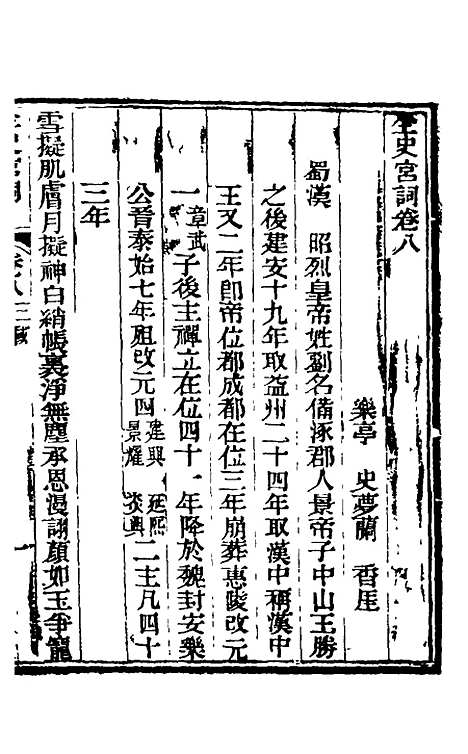 全史宮詞卷八
樂亭 史夢蘭 香厓
蜀漢 昭烈皇帝姓劉名備涿郡人景帝子中山王勝
之後建安十九年取益州二十四年取漢中稱漢中
王又二年卽帝位都成都在位三年崩葬惠陵改元
一章武子後主禪立在位四十一年降於魏封安樂
公晉泰始七年殂改元四建興 延熙景耀 炎興二主凡四十
三年
雪擬肌膚月擬神白綃帳裏淨無塵承恩漫詡顏如玉爭寵
全史宮詞 卷八